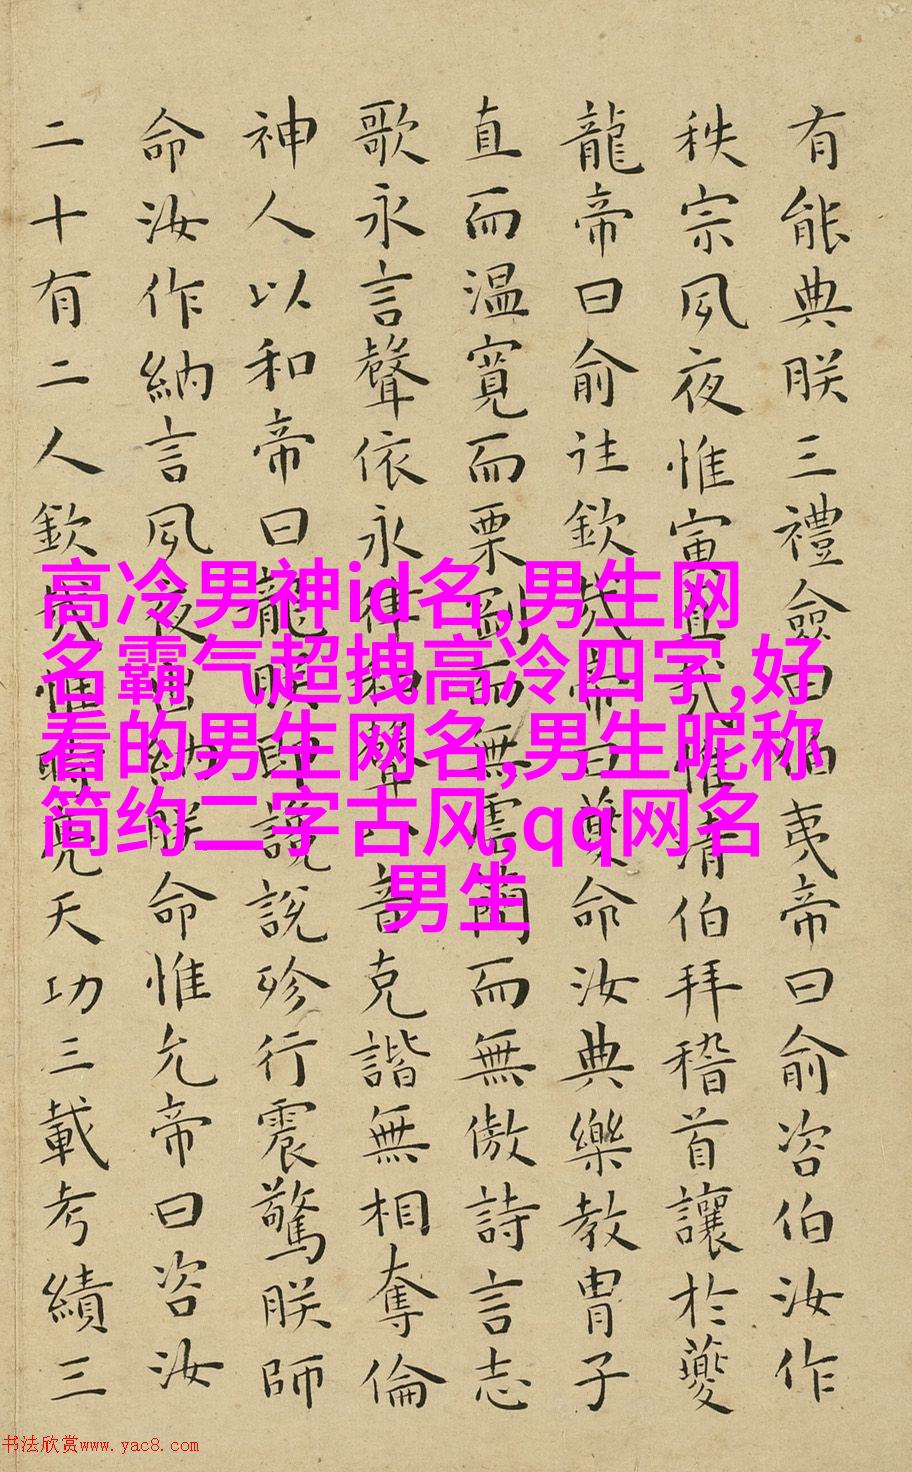 有能典朕三禮僉曰伯夷帝曰俞咨伯汝作
秩宗夙夜惟寅直哉惟清伯拜稽首讓於夔
龍帝曰俞往欽哉帝曰夔命汝典樂教胄子
直而温寬而栗剛而無虐簡而無傲詩言志
歌永言聲依永律和聲八音克諧無相奪倫
神人以和帝曰龍朕堲讒說殄行震驚朕師
命汝作納言夙夜出納朕命惟允帝曰咨汝
二十有二人欽哉惟時亮天功三載考績三
高冷男神id名,男生网
名霸气超拽高冷四字,好
看的男生网名,男生昵称
简约二字古风,qq网名
男生
书法欣赏www.yac8.com